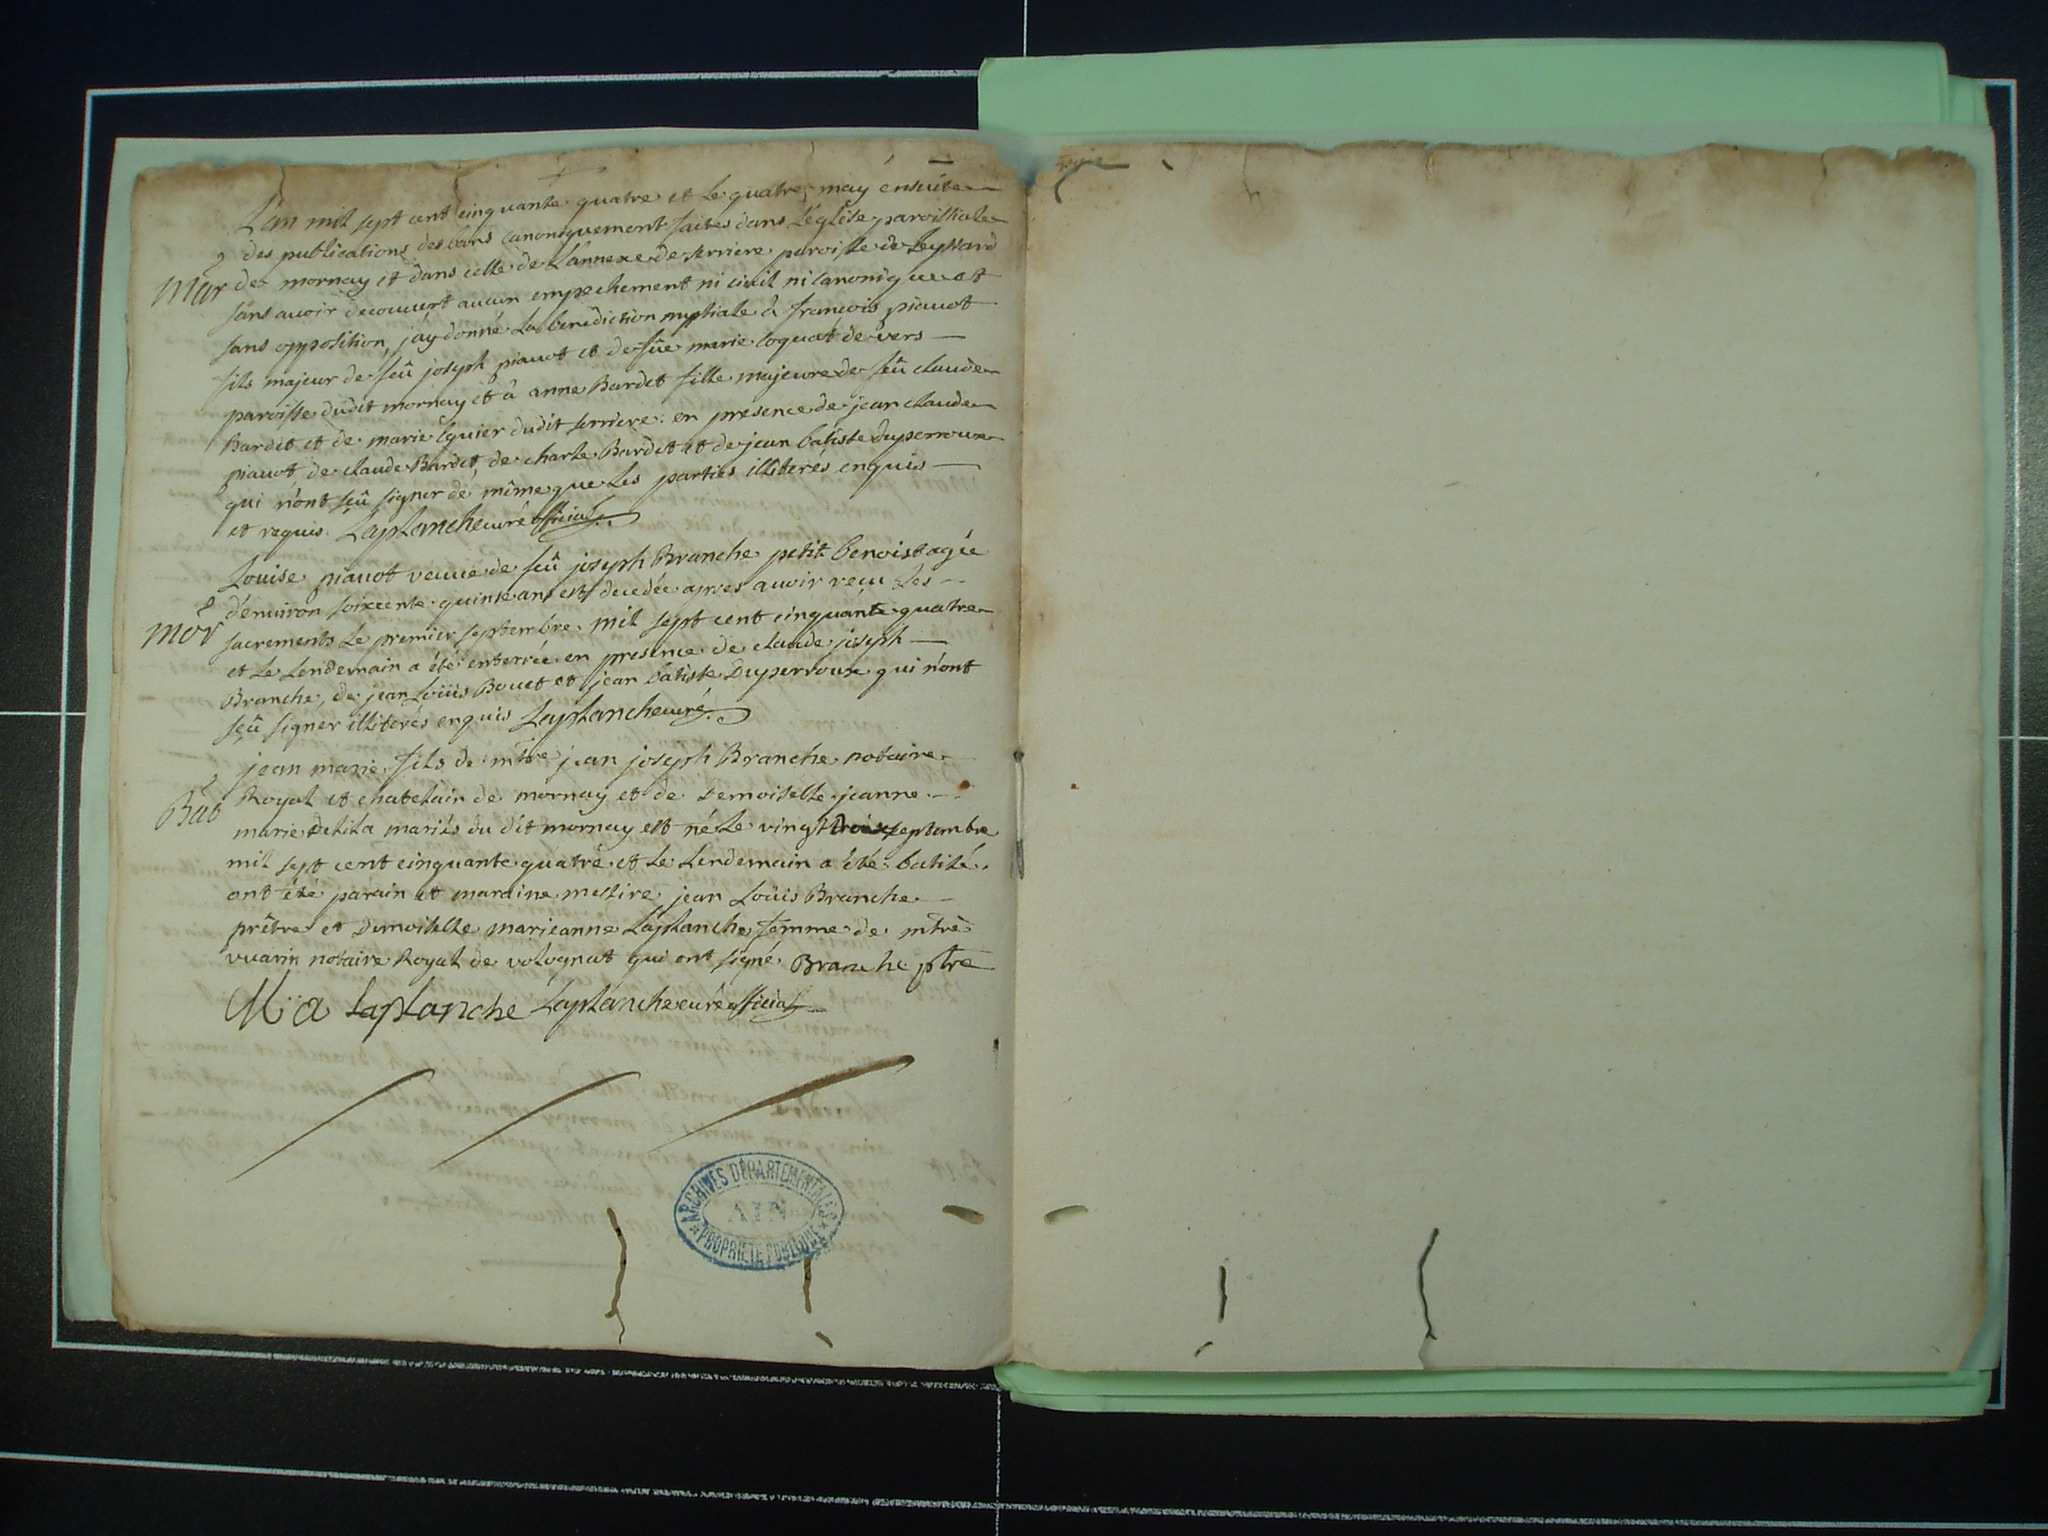 L'an mil sept cent cinquante quatre et le quatre may ensuite
des publications des bans canoniquement faites dans L'église paroissiale
Mar de mornay et dans celle de L'annexe de serriere paroisse de Leyssard
sans avoir decouvert aucun empechement ni civil ni canonique et
sans opposition, j'ay donné La benediction nuptiale à françois piauot
fils majeur de feû joseph piauot et de fûe marie coquat de vers
paroisse dudit mornay et à anne Bardet fille majeure de feû claude
Bardet et de marie Eguier dudit serriere. en presence de jean claude
piauot, de claude Bardet, de charle Bardet et de jean batiste Duperroux
qui n'ont sçû signer de même que Les parties illiterés enquis
et requis. Laplanche curé official
Louise piauot veuve de feû joseph Branche petit benoist agée
d'environ soixcente quinse ans est decedée apres avoir reçu Les
Mor sacrements Le premier septembre mil sept cent cinquante quatre
et Le Lendemain a été enterrée en presence de claude joseph
Branche, de jean Loüis Bouet et jean batiste Duperroux qui n'ont
sçû signer illiterés enquis Laplanche curé
jean marie fils de mtre jean joseph Branche notaire
Bat Royal et chatelain de mornay et de Demoiselle jeanne
marie Delila mariés du dit mornay est né Le vingt trois septembre
mil sept cent cinquante quatre et Le Lendemain a été batisé.
ont été parain et maraine messire jean Loüis Branche
prêtre et Demoiselle marieanne Laplanche femme de mtre
vuarin notaire Royal de volognat qui ont signé Branche ptre
M a Laplanche Laplanche curé official
ARCHIVES DÉPARTEMENTALES
AIN
PROPRIÉTÉ PUBLIQUE